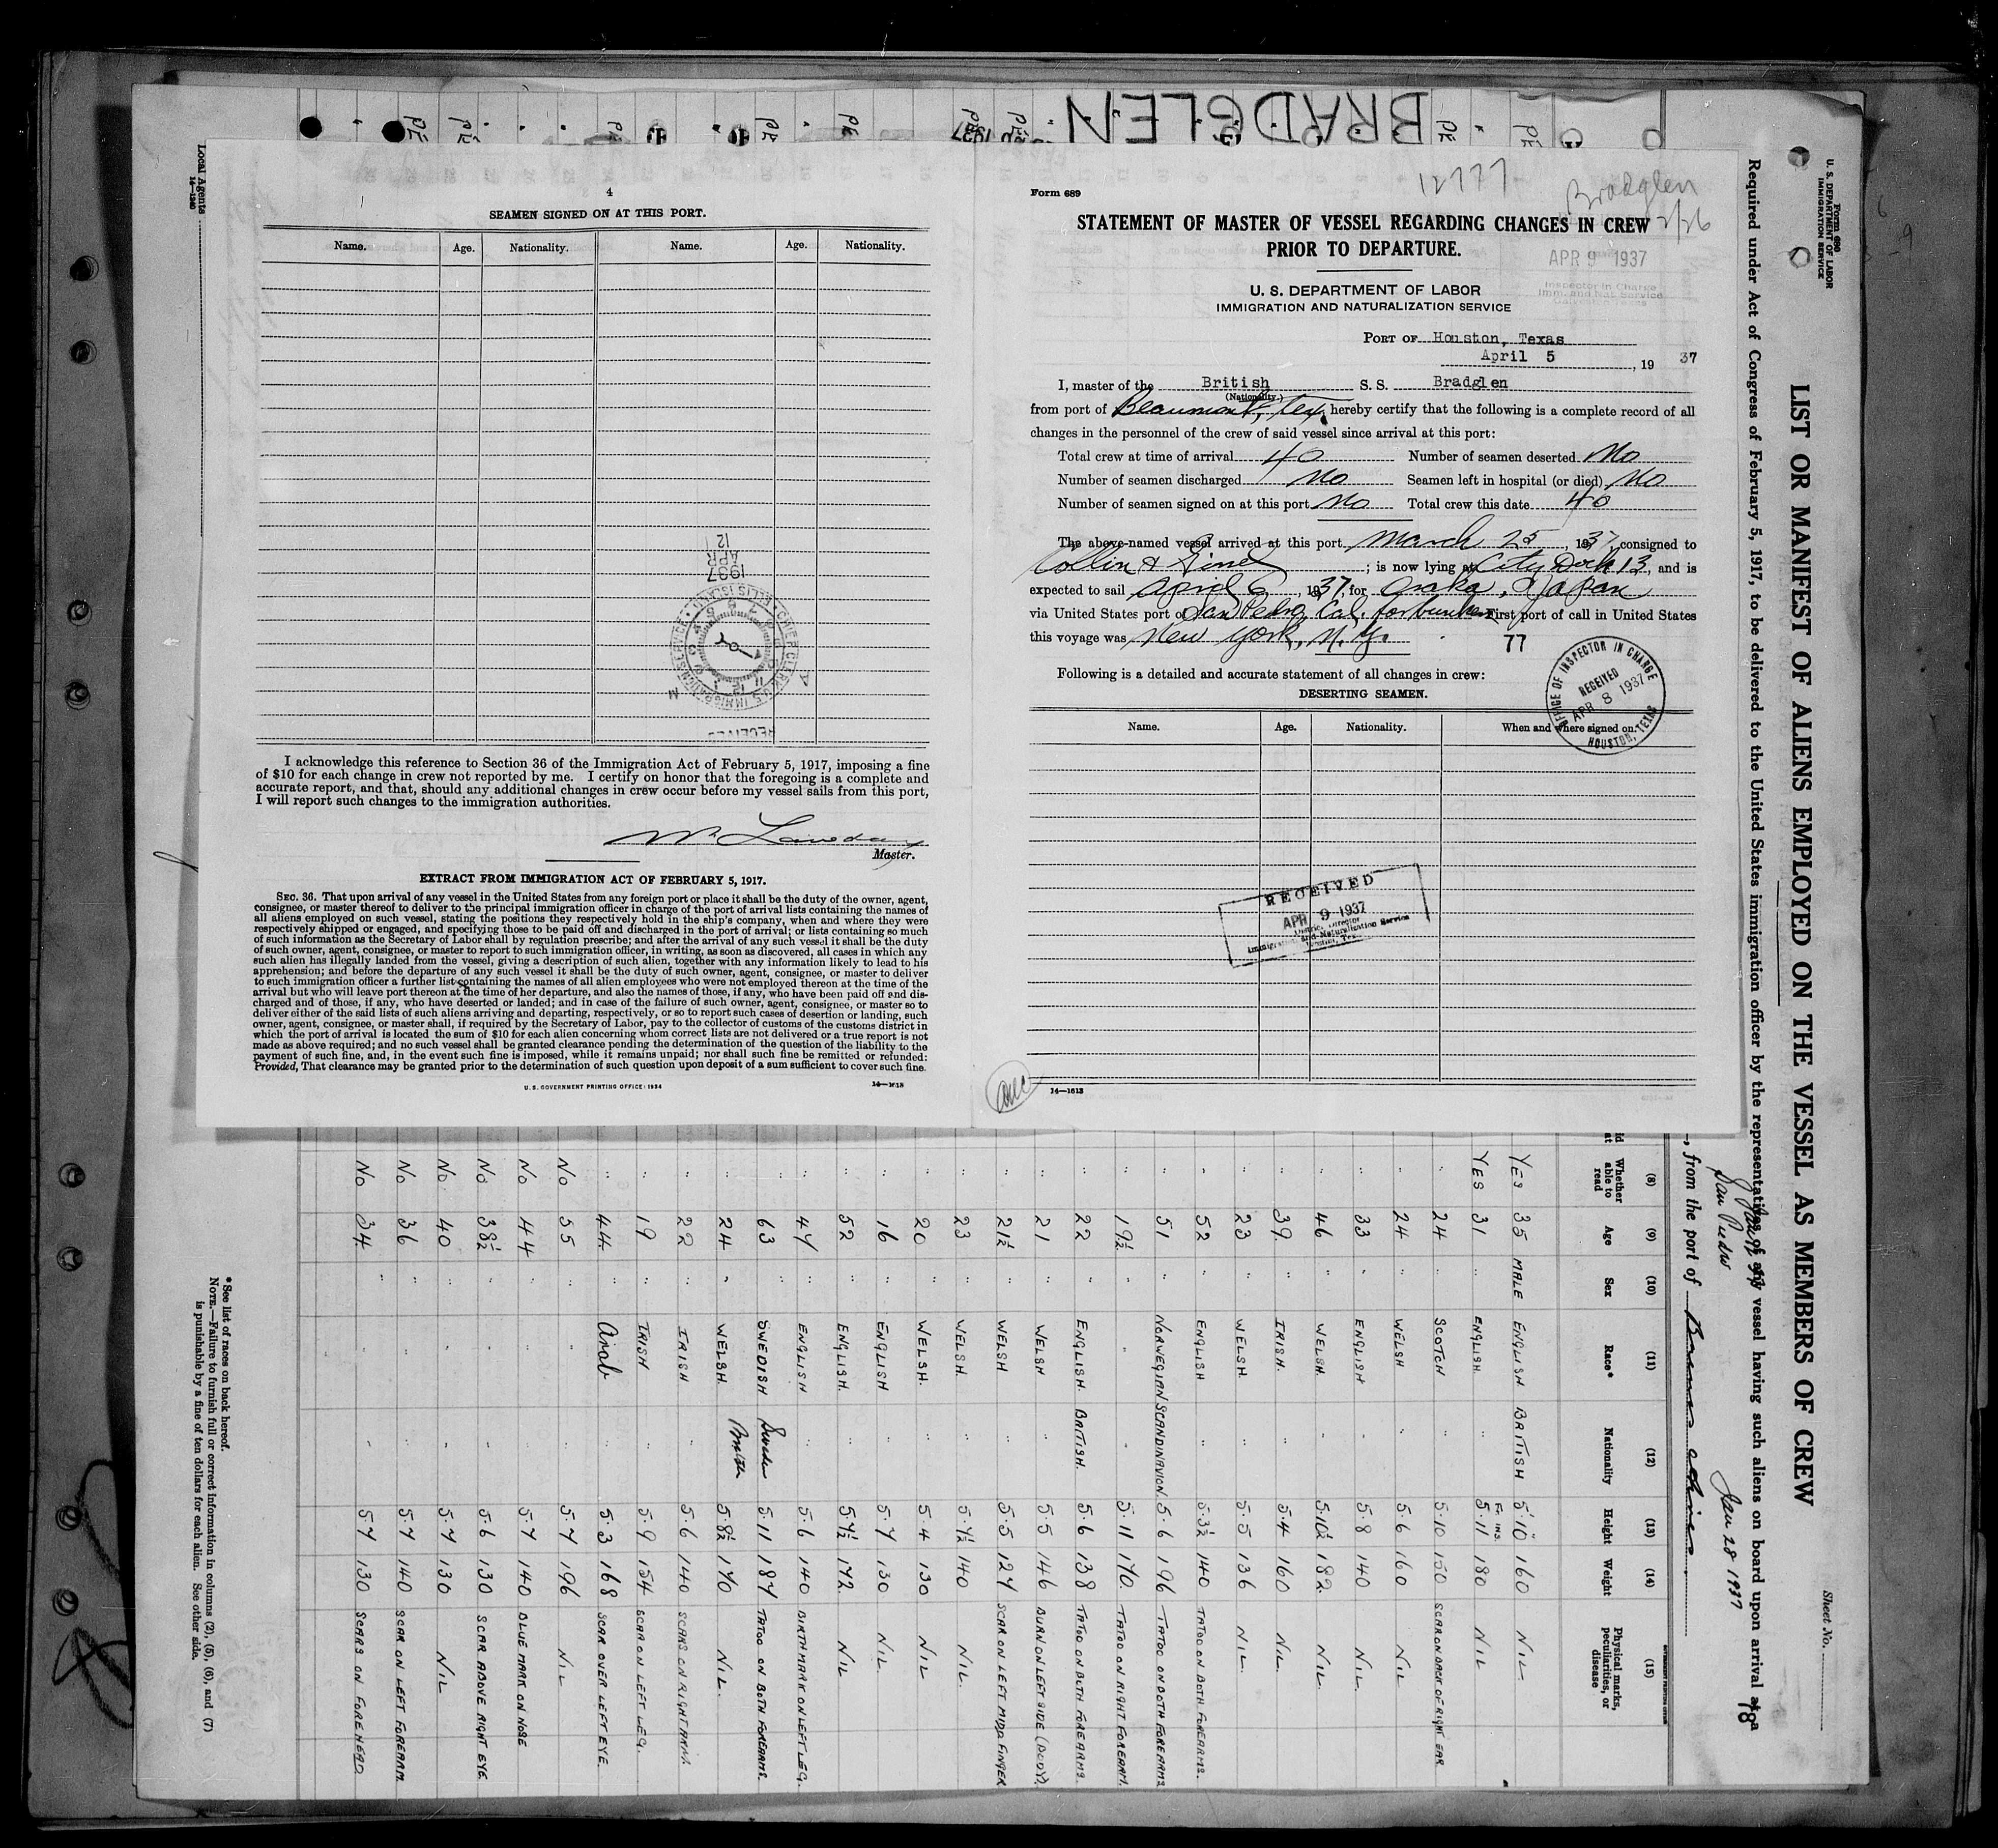 BRADGLEN
Local Agents
14—1240
4
SEAMEN SIGNED ON AT THIS PORT.
Name. Age. Nationality. Name. Age. Nationality.
1937
APR
12
CHIEF CLERK U.S. IMMIGRATION SERVICE ELLIS ISLAND
RECEIVED
I acknowledge this reference to Section 36 of the Immigration Act of February 5, 1917, imposing a fine
of $10 for each change in crew not reported by me. I certify on honor that the foregoing is a complete and
accurate report, and that, should any additional changes in crew occur before my vessel sails from this port,
I will report such changes to the immigration authorities.
Master.
EXTRACT FROM IMMIGRATION ACT OF FEBRUARY 5, 1917.
SEC. 36. That upon arrival of any vessel in the United States from any foreign port or place it shall be the duty of the owner, agent,
consignee, or master thereof to deliver to the principal immigration officer in charge of the port of arrival lists containing the names of
all aliens employed on such vessel, stating the positions they respectively hold in the ship's company, when and where they were
respectively shipped or engaged, and specifying those to be paid off and discharged in the port of arrival; or lists containing so much
of such information as the Secretary of Labor shall by regulation prescribe; and after the arrival of any such vessel it shall be the duty
of such owner, agent, consignee, or master to report to such immigration officer, in writing, as soon as discovered, all cases in which any
such alien has illegally landed from the vessel, giving a description of such alien, together with any information likely to lead to his
apprehension; and before the departure of any such vessel it shall be the duty of such owner, agent, consignee, or master to deliver
to such immigration officer a further list containing the names of all alien employees who were not employed thereon at the time of the
arrival but who will leave port thereon at the time of her departure, and also the names of those, if any, who have been paid off and dis-
charged and of those, if any, who have deserted or landed; and in case of the failure of such owner, agent, consignee, or master so to
deliver either of the said lists of such aliens arriving and departing, respectively, or so to report such cases of desertion or landing, such
owner, agent, consignee, or master shall, if required by the Secretary of Labor, pay to the collector of customs of the customs district in
which the port of arrival is located the sum of $10 for each alien concerning whom correct lists are not delivered or a true report is not
made as above required; and no such vessel shall be granted clearance pending the determination of the question of the liability to the
payment of such fine, and, in the event such fine is imposed, while it remains unpaid; nor shall such fine be remitted or refunded:
Provided, That clearance may be granted prior to the determination of such question upon deposit of a sum sufficient to cover such fine.
U. S. GOVERNMENT PRINTING OFFICE: 1934 14—1613
Form 689
12777
Bradglen
2/26
STATEMENT OF MASTER OF VESSEL REGARDING CHANGES IN CREW
PRIOR TO DEPARTURE.
APR 9 1937
Inspector in Charge
Imm. and Nat. Service
U. S. DEPARTMENT OF LABOR
IMMIGRATION AND NATURALIZATION SERVICE
PORT OF Houston, Texas
April 5, 19 37
I, master of the British S. S. Bradglen
(Nationality.)
from port of Beaumont, Tex, hereby certify that the following is a complete record of all
changes in the personnel of the crew of said vessel since arrival at this port:
Total crew at time of arrival 40 Number of seamen deserted No
Number of seamen discharged No Seamen left in hospital (or died) No
Number of seamen signed on at this port No Total crew this date 40
The above-named vessel arrived at this port March 25, 1937, consigned to
; is now lying at City Dock 13, and is
expected to sail April 6, 1937, for Osaka, Japan
via United States port of San Pedro, Cal. for bunkers First port of call in United States
this voyage was New York, N.Y.
77
Following is a detailed and accurate statement of all changes in crew:
DESERTING SEAMEN.
OFFICE OF INSPECTOR IN CHARGE
RECEIVED
APR 8 1937
HOUSTON, TEXAS
Name. Age. Nationality. When and where signed on.
RECEIVED
APR 9 1937
District Director
Immigration and Naturalization Service
14—1613
Form 680
U. S. DEPARTMENT OF LABOR
IMMIGRATION SERVICE
Sheet No.
LIST OR MANIFEST OF ALIENS EMPLOYED ON THE VESSEL AS MEMBERS OF CREW
Required under Act of Congress of February 5, 1917, to be delivered to the United States immigration officer by the representatives of any vessel having such aliens on board upon arrival at a
78
San Pedro
Jan 28 1937
, from the port of
(8) (9) (10) (11) (12) (13) (14) (15)
Whether able to read Age Sex Race* Nationality Height Weight Physical marks, peculiarities, or disease
YES 35 MALE ENGLISH BRITISH 5'10" 160 NIL
Ft. INS.
YES 31 " ENGLISH " 5.11 180 NIL
" 24 " SCOTCH " 5.10 150 SCAR ON BACK OF RIGHT EAR
" 24 " WELSH " 5.6 160 NIL
" 33 " ENGLISH " 5.8 140 NIL
" 46 " WELSH " 5.10½ 182 NIL
" 39 " IRISH " 5.4 160 NIL
" 23 " WELSH " 5.5 136 NIL
" 52 " ENGLISH " 5.3½ 140 TATOO ON BOTH FOREARMS.
" 51 " NORWEGIAN SCANDINAVION 5.6 196 TATOO ON BOTH FOREARMS
" 19½ " " " 5.11 170 TATOO ON RIGHT FOREARM.
" 22 " ENGLISH. BRITISH. 5.6 138 TATOO ON BOTH FOREARMS
" 21 " WELSH " 5.5 146 BURN ON LEFT SIDE (BODY)
" 21½ " WELSH " 5.5 127 SCAR ON LEFT MIDD FINGER
" 23 " WELSH " 5.7½ 140 NIL.
" 20 " WELSH. " 5.4 130 NIL
" 16 " ENGLISH " 5.7 130 NIL.
" 52 " ENGLISH. " 5.7½ 172 NIL
" 47 " ENGLISH " 5.6 140 BIRTHMARK ON LEFT LEG.
" 63 " SWEDISH Sweden 5.11 187 TATOO ON BOTH FOREARMS.
" 24 " WELSH. British 5.8½ 170 NIL.
" 22 " IRISH " 5.6 140 SCARS ON RIGHT HAND.
" 19 " IRISH " 5.9 154 SCAR ON LEFT LEG.
" 44 " Arab " 5.3 168 SCAR OVER LEFT EYE.
NO 55 " " " 5.7 196 NIL
NO 44 " " " 5.7 140 BLUE MARK ON NOSE
NO 38½ " " " 5.6 130 SCAR ABOVE RIGHT EYE
NO. 40 " " " 5.7 130 NIL
NO 36 " " " 5.7 140 SCAR ON LEFT FOREARM
NO 34 " " " 5.7 130 SCARS ON FOREHEAD
*See list of races on back hereof.
NOTE.—Failure to furnish full or correct information in columns (2), (5), (6), and (7)
is punishable by a fine of ten dollars for each alien. See other side.